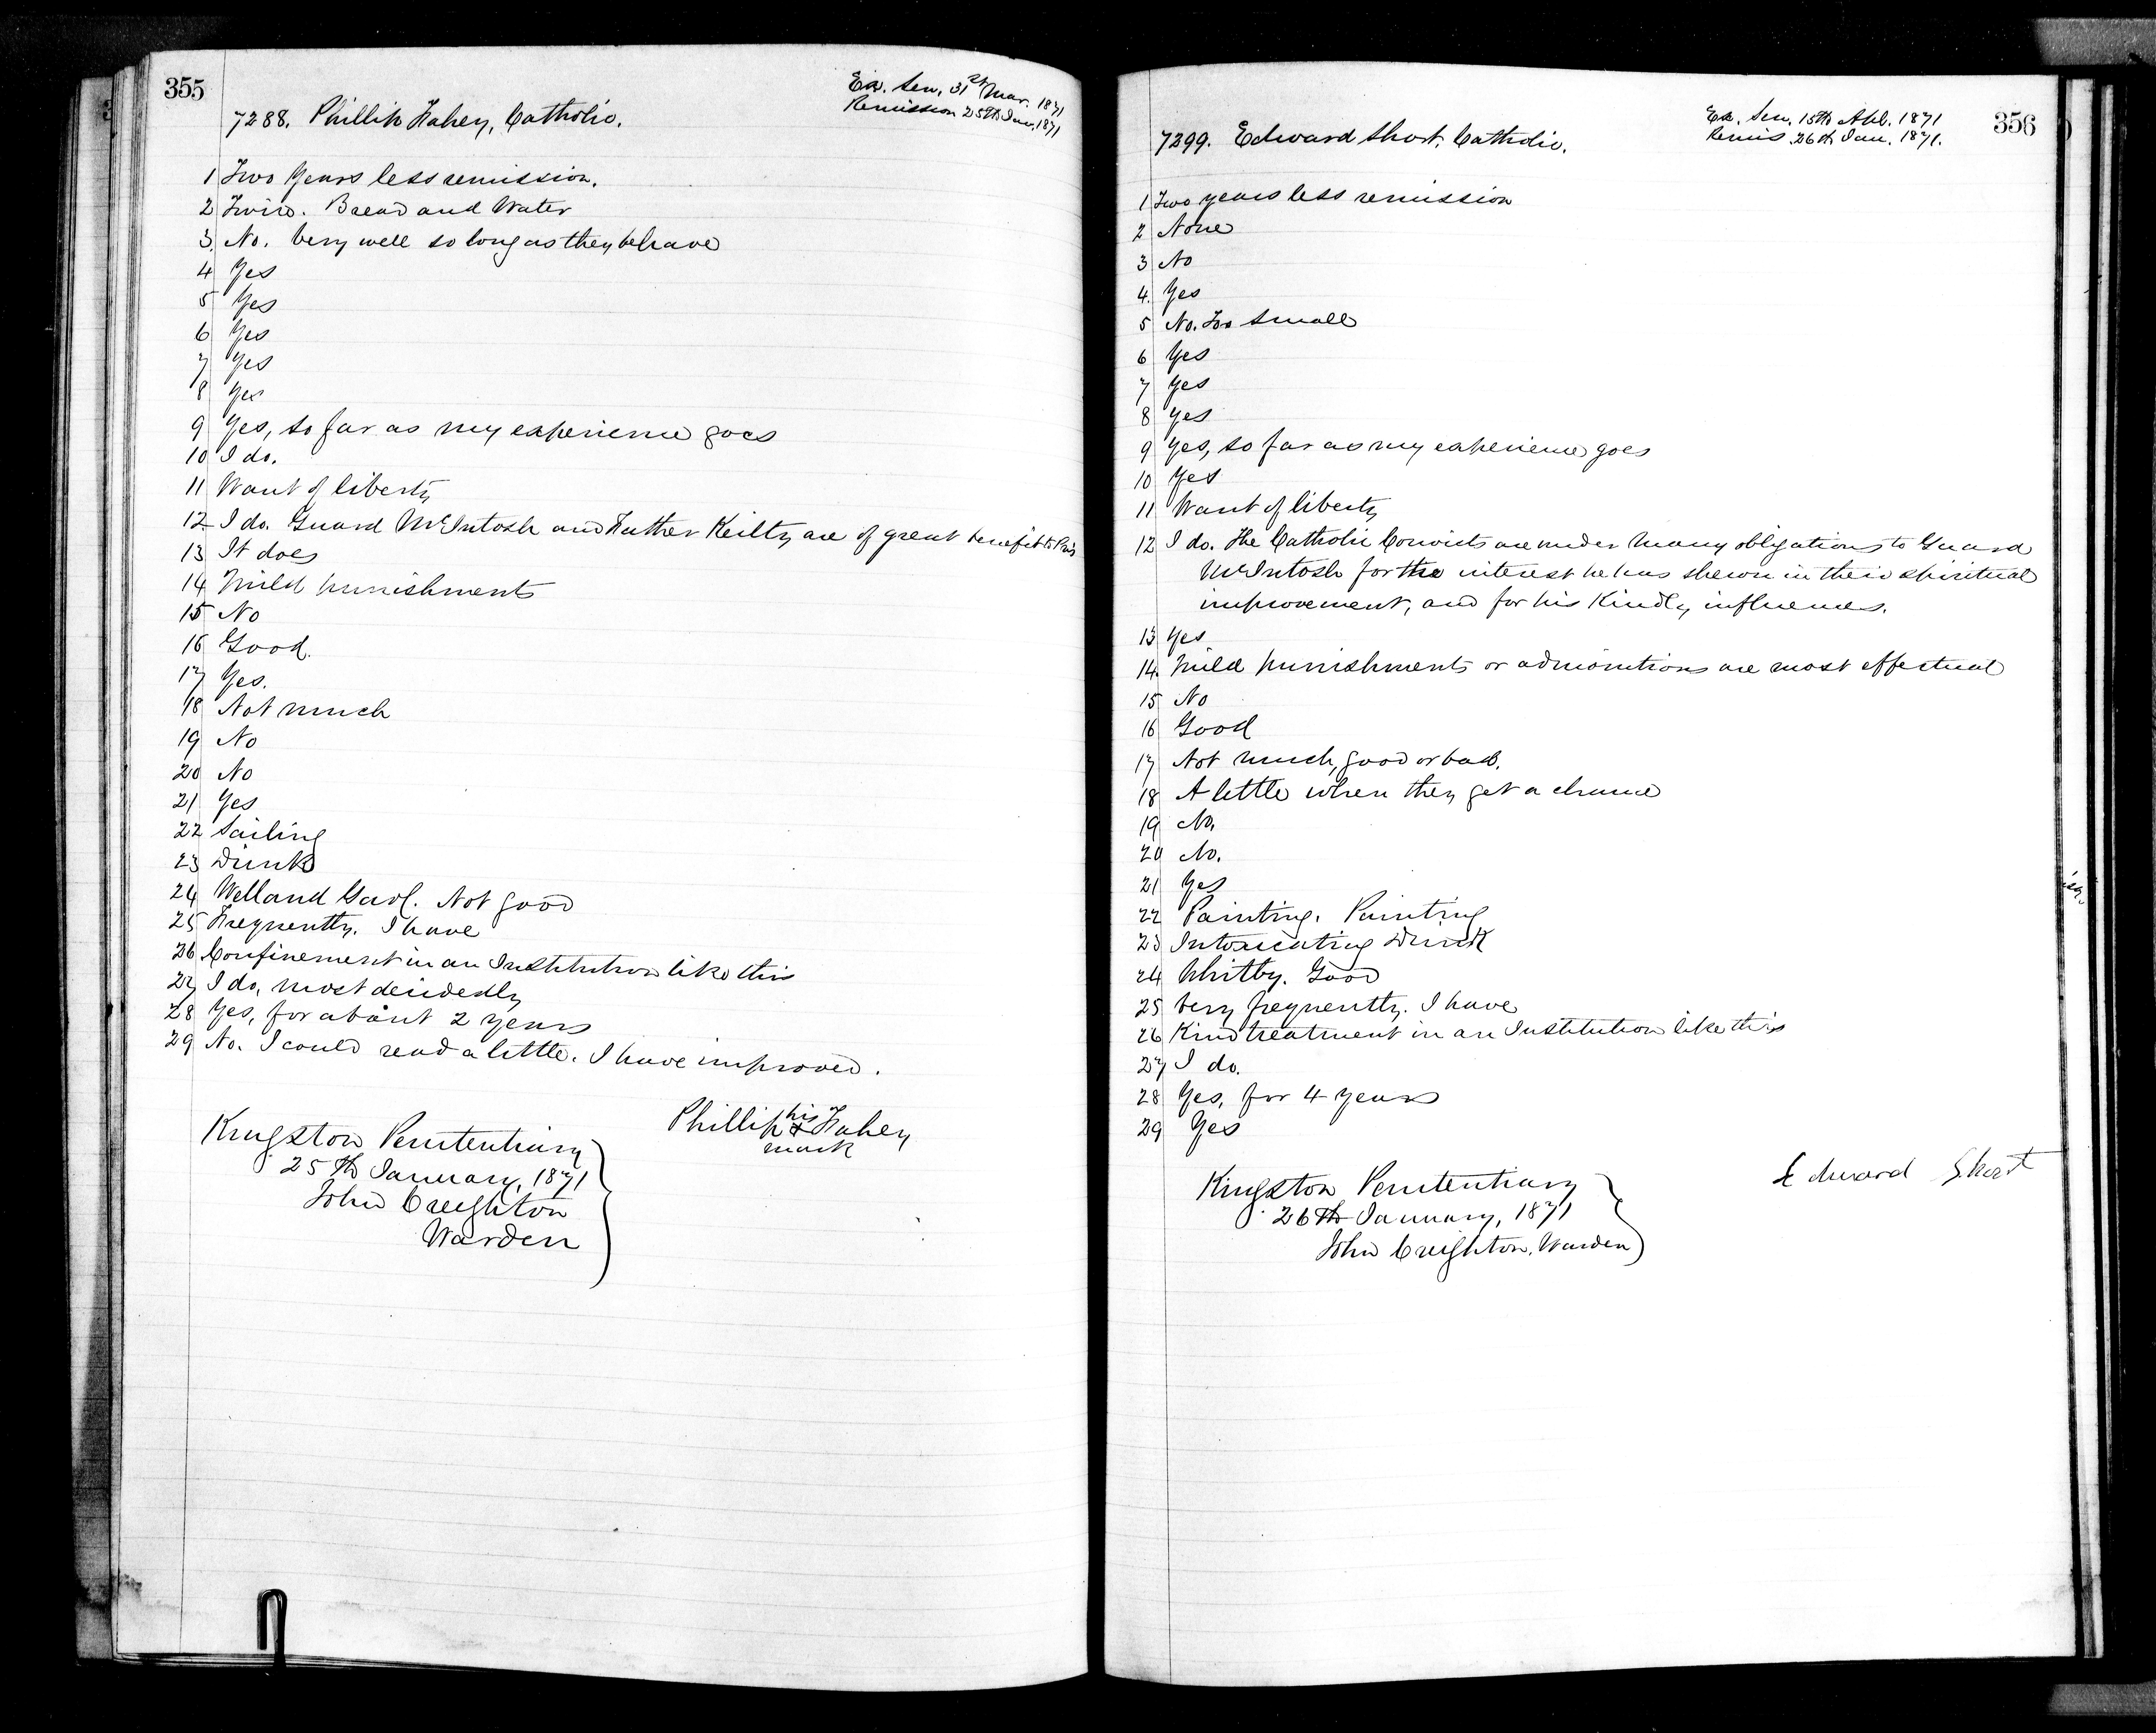 355
Ex. Sen. 31st Mar. 1871
Remission 25th Jan. 1871
7288. Phillip Fahey, Catholic.
1 Two Years less remission.
2 Twice. Bread and Water
3. No. Very well so long as they behave
4 Yes
5 Yes
6 Yes
7 Yes
8 Yes
9 Yes, so far as my experience goes
10 I do.
11 Want of liberty
12 I do. Guard McIntosh and Father Keilty are of great benefit to
13 It does
14 Mild punishments
15 No
16 Good.
17 Yes.
18 Not much
19 No
20 No
21 Yes
22 Sailing
23 Drink
24 Welland Gaol. Not good
25 Frequently. I have
26 Confinement in an Institution like this
27 I do, most decidedly
28 Yes, for about 2 years
29 No. I could read a little. I have improved.
Phillip his x mark Fahey
Kingston Penitentiary
25th January, 1871
John Creighton
Warden
356
Ex. Sen. 15th Apl. 1871
Remis. 26th Jan. 1871.
7299. Edward Short. Catholic.
1 Two years less remission
2 None
3 No
4. Yes
5 No. Too small
6 Yes
7 Yes
8 Yes
9 Yes, so far as my experience goes
10 Yes
11 Want of liberty
12 I do. The Catholic Convicts are under many obligations to Guard
McIntosh for the interest he has shewn in their spiritual
improvement, and for his kindly influences.
13 Yes
14. Mild punishments or admonitions are most effectual
15 No
16 Good
17 Not much, good or bad.
18 A little when they get a chance
19 No.
20 No.
21 Yes
22 Painting. Painting
23 Intoxicating Drink
24 Whitby. Good
25 Very frequently. I have
26 Kind treatment in an Institution like this
27 I do.
28 Yes, for 4 years
29 Yes
Edward Short
Kingston Penitentiary
26th January, 1871
John Creighton, Warden